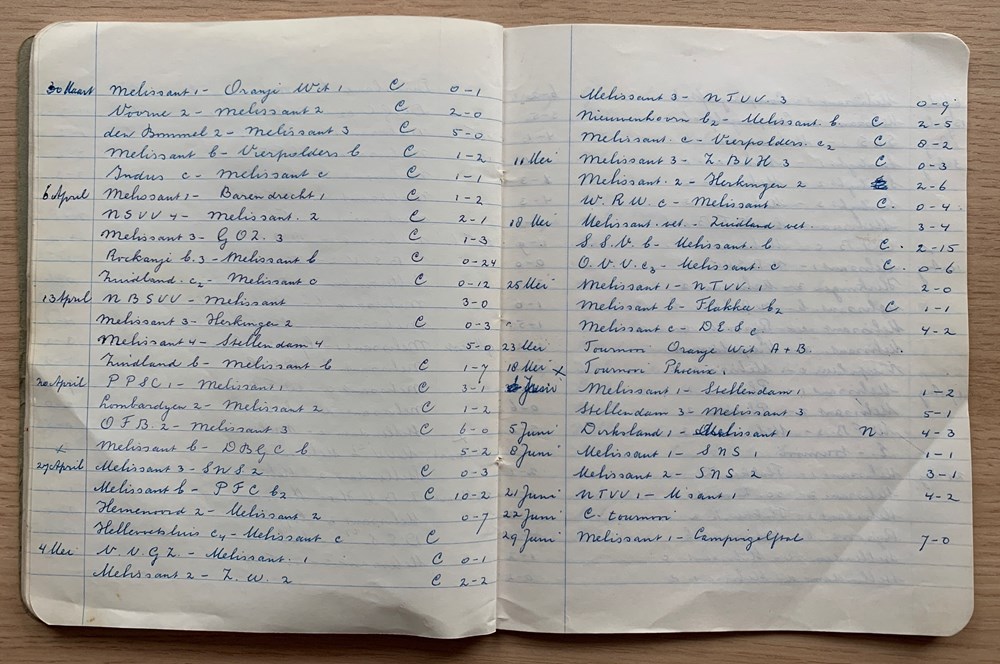 30 Maart Melissant 1 - Oranje Wit 1 C 0-1
Voorne 2 - Melissant 2 C 2-0
den Bommel 2 - Melissant 3 C 5-0
Melissant b - Vierpolders b C 1-2
Indus c - Melissant c C 1-1
6 April Melissant 1 - Barendrecht 1 C 1-2
NSVV 4 - Melissant. 2 C 2-1
Melissant 3 - GOZ. 3 C 1-3
Rockanje b.3 - Melissant b C 0-24
Zuidland. c2 - Melissant c C 0-12
13 April NBSVV - Melissant 3-0
Melissant 3 - Herkingen 2 C 0-3
Melissant 4 - Stellendam 4 5-0
Zuidland b - Melissant b C 1-7
20 April PPSC 1 - Melissant 1 C 3-1
Lombardyen 2 - Melissant 2 C 1-2
OFB. 2 - Melissant 3 C 6-0
x Melissant b - DBGC b 5-2
27 April Melissant 3 - SNS 2 C 0-3
Melissant b - PFC b2 C 10-2
Heinenoord 2 - Melissant 2 0-7
Hellevoetsluis c4 - Melissant c C
4 Mei V.V.GZ. - Melissant. 1 C 0-1
Melissant 2 - Z.W. 2 C 2-2
Melissant 3 - NTVV 3 0-9
Nieuwenhoorn b2 - Melissant. b C 2-5
Melissant. c - Vierpolders. c2 C 8-2
11 Mei Melissant 3 - Z.BVH 3 C 0-3
Melissant. 2 - Herkingen 2 2-6
W.R.W. c - Melissant C. 0-4
18 Mei Melissant. vet. - Zuidland vet. 3-4
S.S.V. b - Melissant. b C. 2-15
O.V.V. c3 - Melissant. c C. 0-6
25 Mei Melissant 1 - NTVV. 1 2-0
Melissant b - Flakkee b2 C 1-1
Melissant c - DES c 4-2
23 Mei Tournooi Oranje Wit A + B
18 Mei x Tournooi Phoenix.
Juni Melissant 1 - Stellendam 1 1-2
Stellendam 3 - Melissant 3 5-1
5 Juni Dirksland 1 - Melissant 1 N 4-3
8 Juni Melissant 1 - SNS 1 1-1
Melissant 2 - SNS 2 3-1
21 Juni NTVV 1 - M'sant 1 4-2
22 Juni C. tournooi
29 Juni Melissant 1 - 7-0